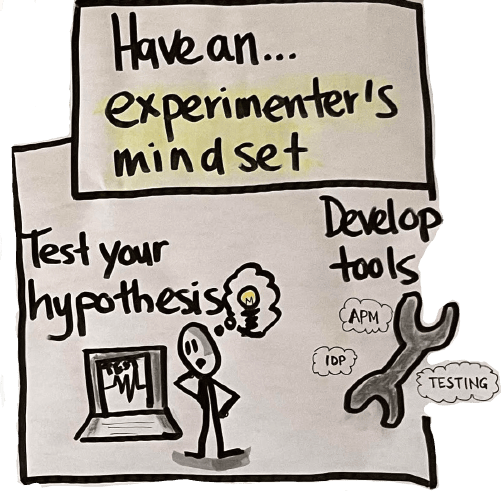 Have an...
experimenter's
mindset
Test your
hypothesis
Develop
tools
APM
IDP
TESTING
TEST